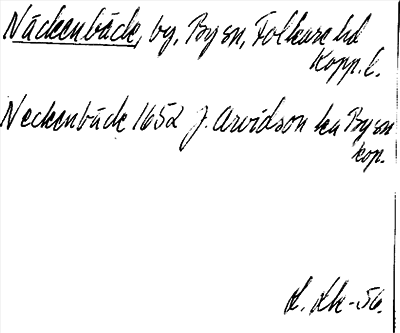 Näckenbäck, by, By sn, Folkare hd
Kopp. l.
Neckenbäck 1652 J. Arvidson ka By sn
kop.